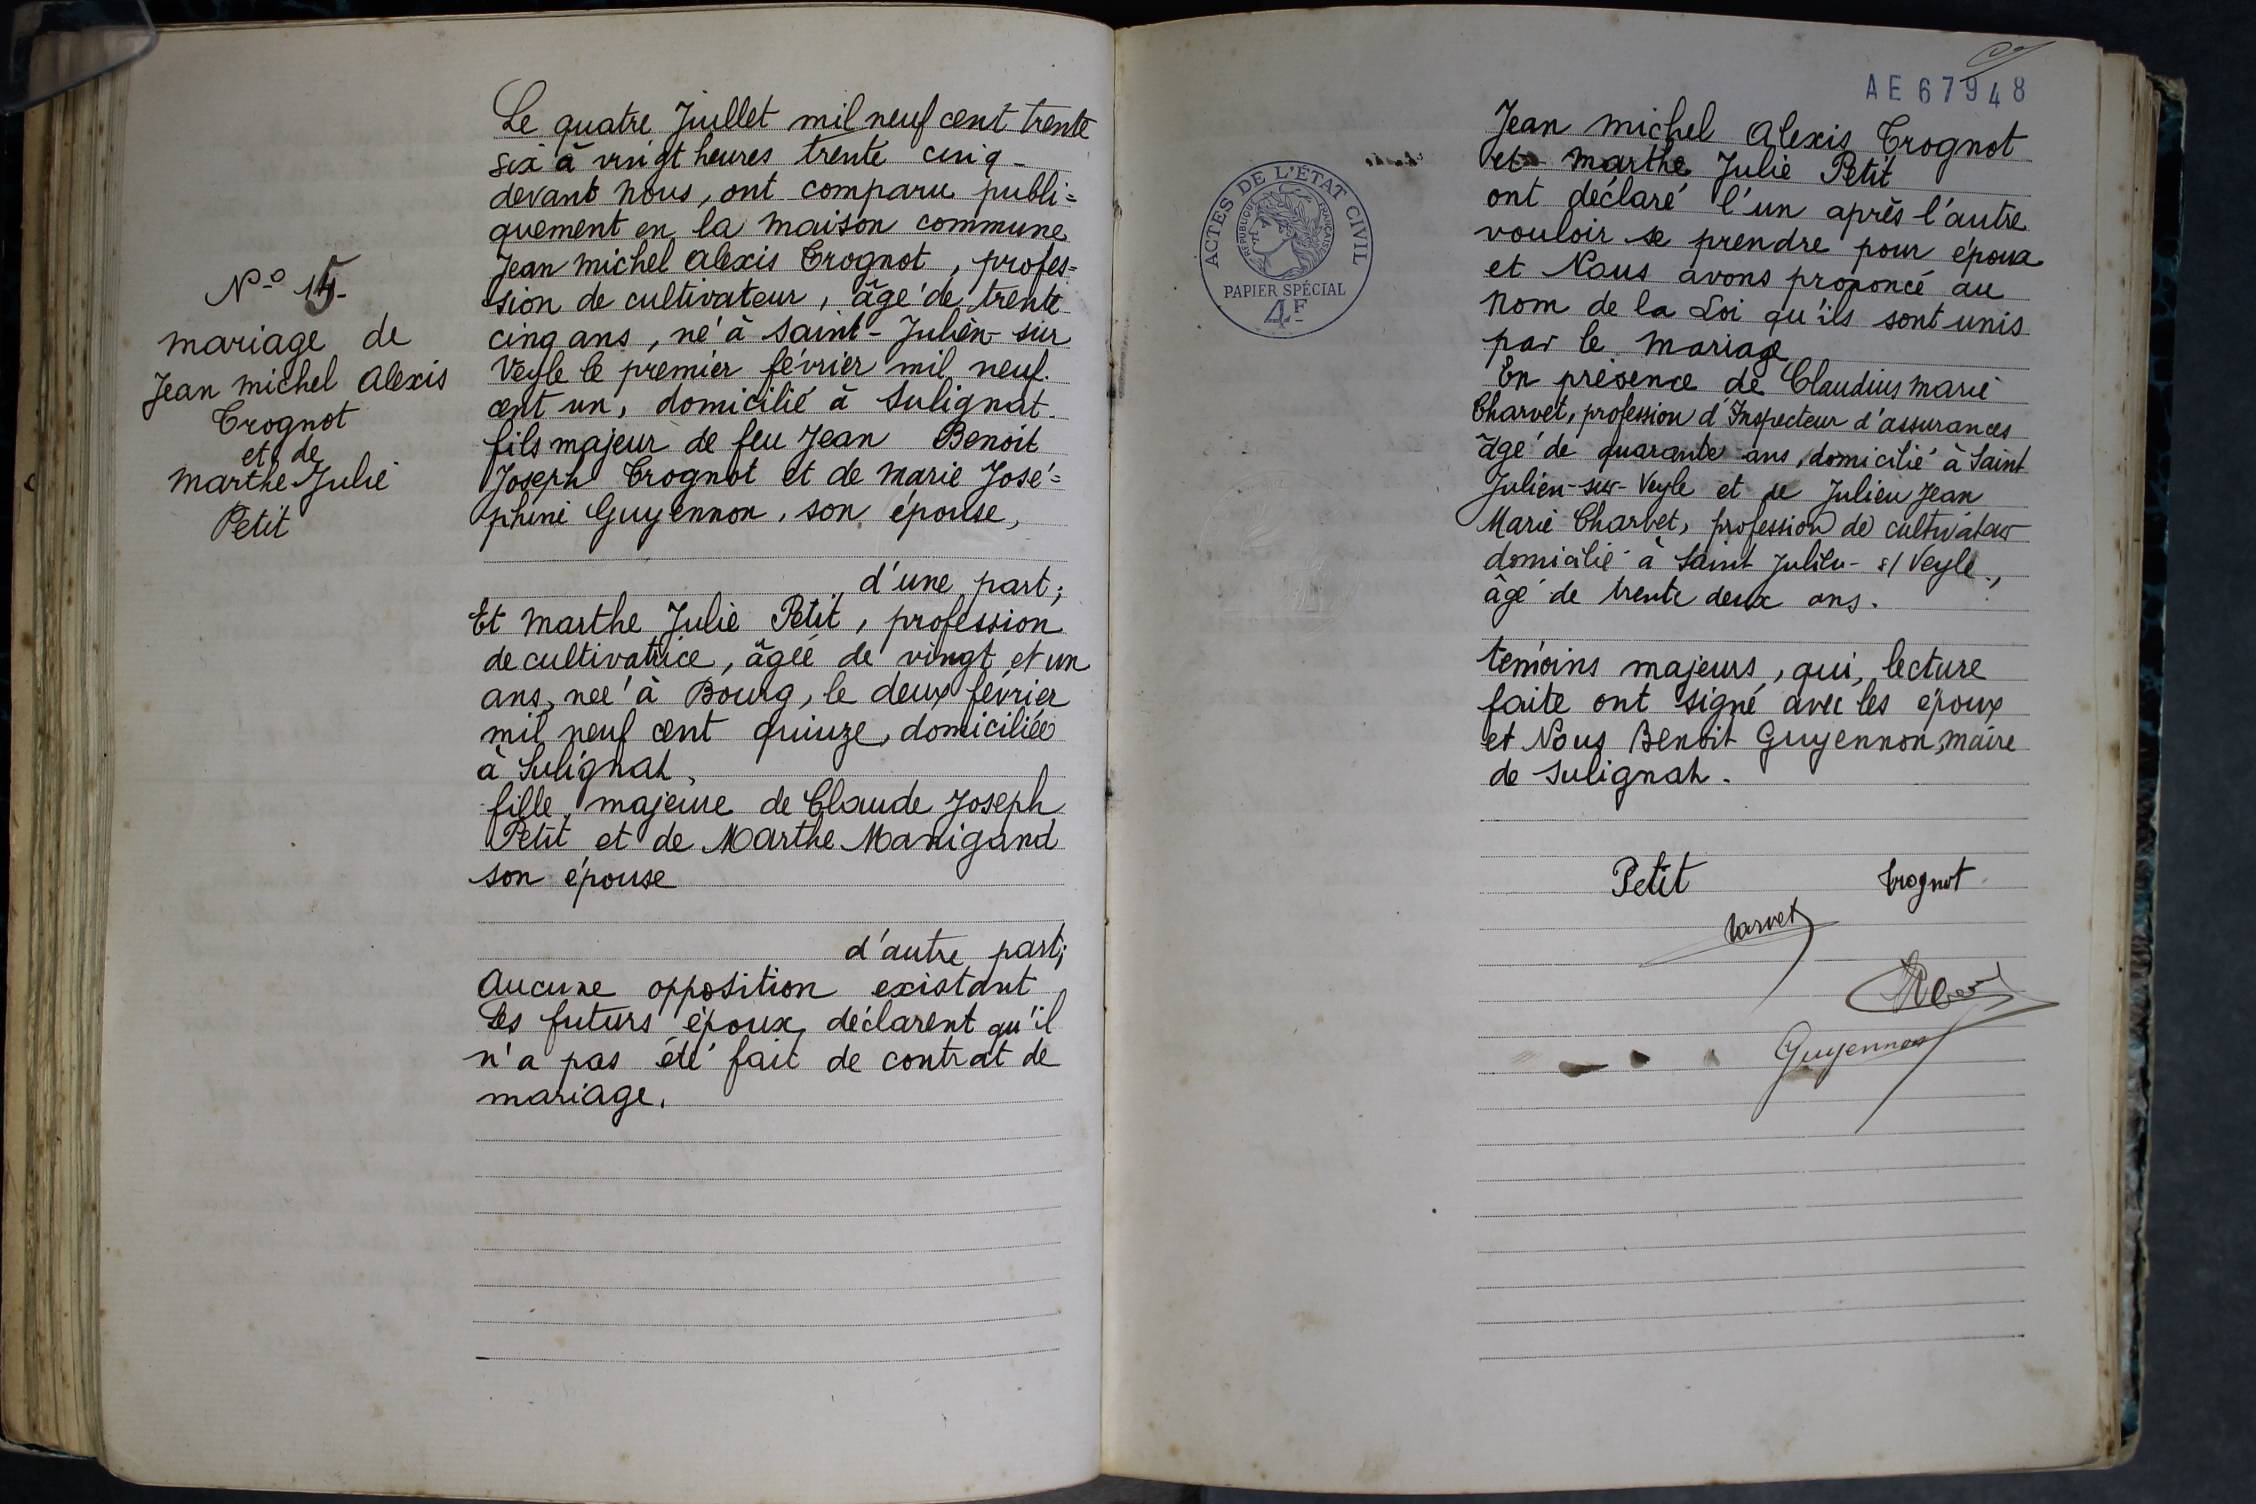 N-o 15-
mariage de
Jean michel Alexis
Trognot
et de
Marthe Julie
Petit
Le quatre Juillet mil neuf cent trente
six à vingt heures trente cinq -
devant nous, ont comparu publi=
quement en la maison commune
Jean michel Alexis Trognot, profes=
sion de cultivateur, âgé de trente
cinq ans, né à Saint-Julien-sur
Veyle le premier février mil neuf.
cent un, domicilié à Sulignat.
fils majeur de feu Jean Benoit
Joseph Trognot et de Marie José=
phine Guyennon, son épouse,
d'une part;
Et Marthe Julie Petit, profession
de cultivatrice, âgée de vingt et un
ans, née à Bourg, le deux février
mil neuf cent quinze, domiciliée
à Sulignat,
fille majeure de Claude Joseph
Petit et de Marthe Manigand
son épouse
d'autre part;
Aucune opposition existant
Les futurs époux déclarent qu'il
n'a pas été fait de contrat de
mariage.
AE 67948
ACTES DE L'ÉTAT CIVIL
RÉPUBLIQUE FRANÇAISE
PAPIER SPÉCIAL
4F
Jean michel Alexis Trognot
et Marthe Julie Petit
ont déclaré l'un après l'autre
vouloir se prendre pour époux
et Nous avons prononcé au
nom de la Loi qu'ils sont unis
par le mariage
En présence de Claudius Marie
Charvet, profession d'Inspecteur d'assurances
âgé de quarante ans, domicilié à Saint
Julien-sur-Veyle et de Julien Jean
Marie Charvet, profession de cultivateur
domicilié à Saint Julien- s/ Veyle,
âgé de trente deux ans.
témoins majeurs, qui, lecture
faite ont signé avec les époux
et Nous Benoit Guyennon, maire
de Sulignat.
Petit Trognot
Charvet
Guyennon